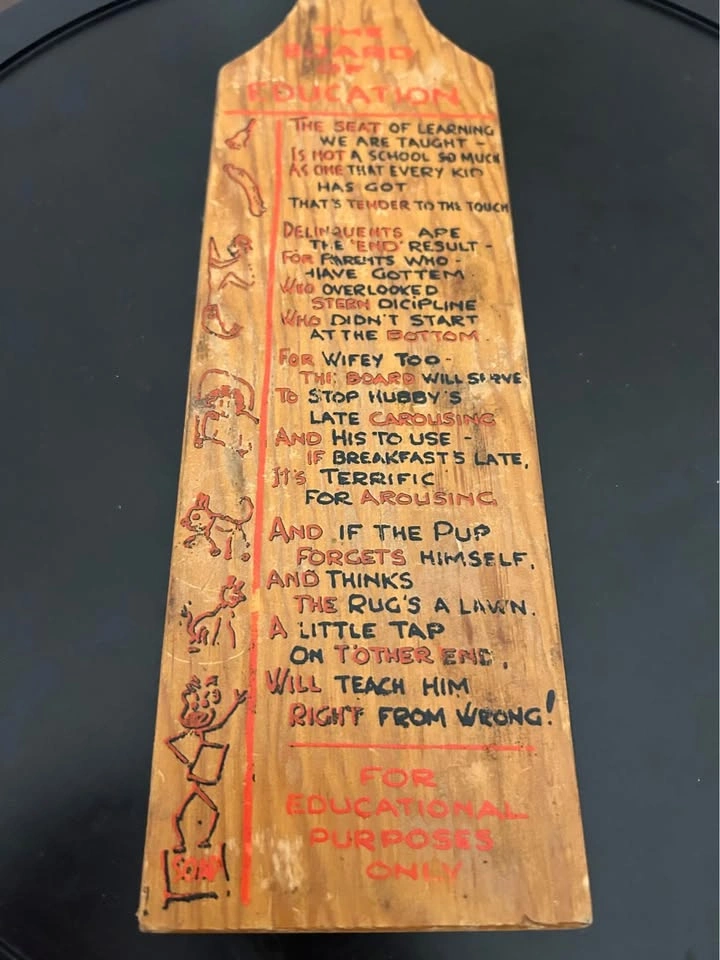 THE
BOARD
OF
EDUCATION
THE SEAT OF LEARNING
WE ARE TAUGHT -
IS NOT A SCHOOL SO MUCH
AS ONE THAT EVERY KID
HAS GOT
THAT'S TENDER TO THE TOUCH
DELINQUENTS ARE
THE 'END' RESULT -
FOR PARENTS WHO -
HAVE GOTTEM
WHO OVERLOOKED
STERN DICIPLINE
WHO DIDN'T START
AT THE BOTTOM.
FOR WIFEY TOO -
THE BOARD WILL SERVE
TO STOP HUBBY'S
LATE CAROUSING
AND HIS TO USE -
IF BREAKFAST'S LATE,
IT'S TERRIFIC
FOR AROUSING
AND IF THE PUP
FORGETS HIMSELF,
AND THINKS
THE RUG'S A LAWN.
A LITTLE TAP
ON T'OTHER END,
WILL TEACH HIM
RIGHT FROM WRONG!
SOAP
FOR
EDUCATIONAL
PURPOSES
ONLY